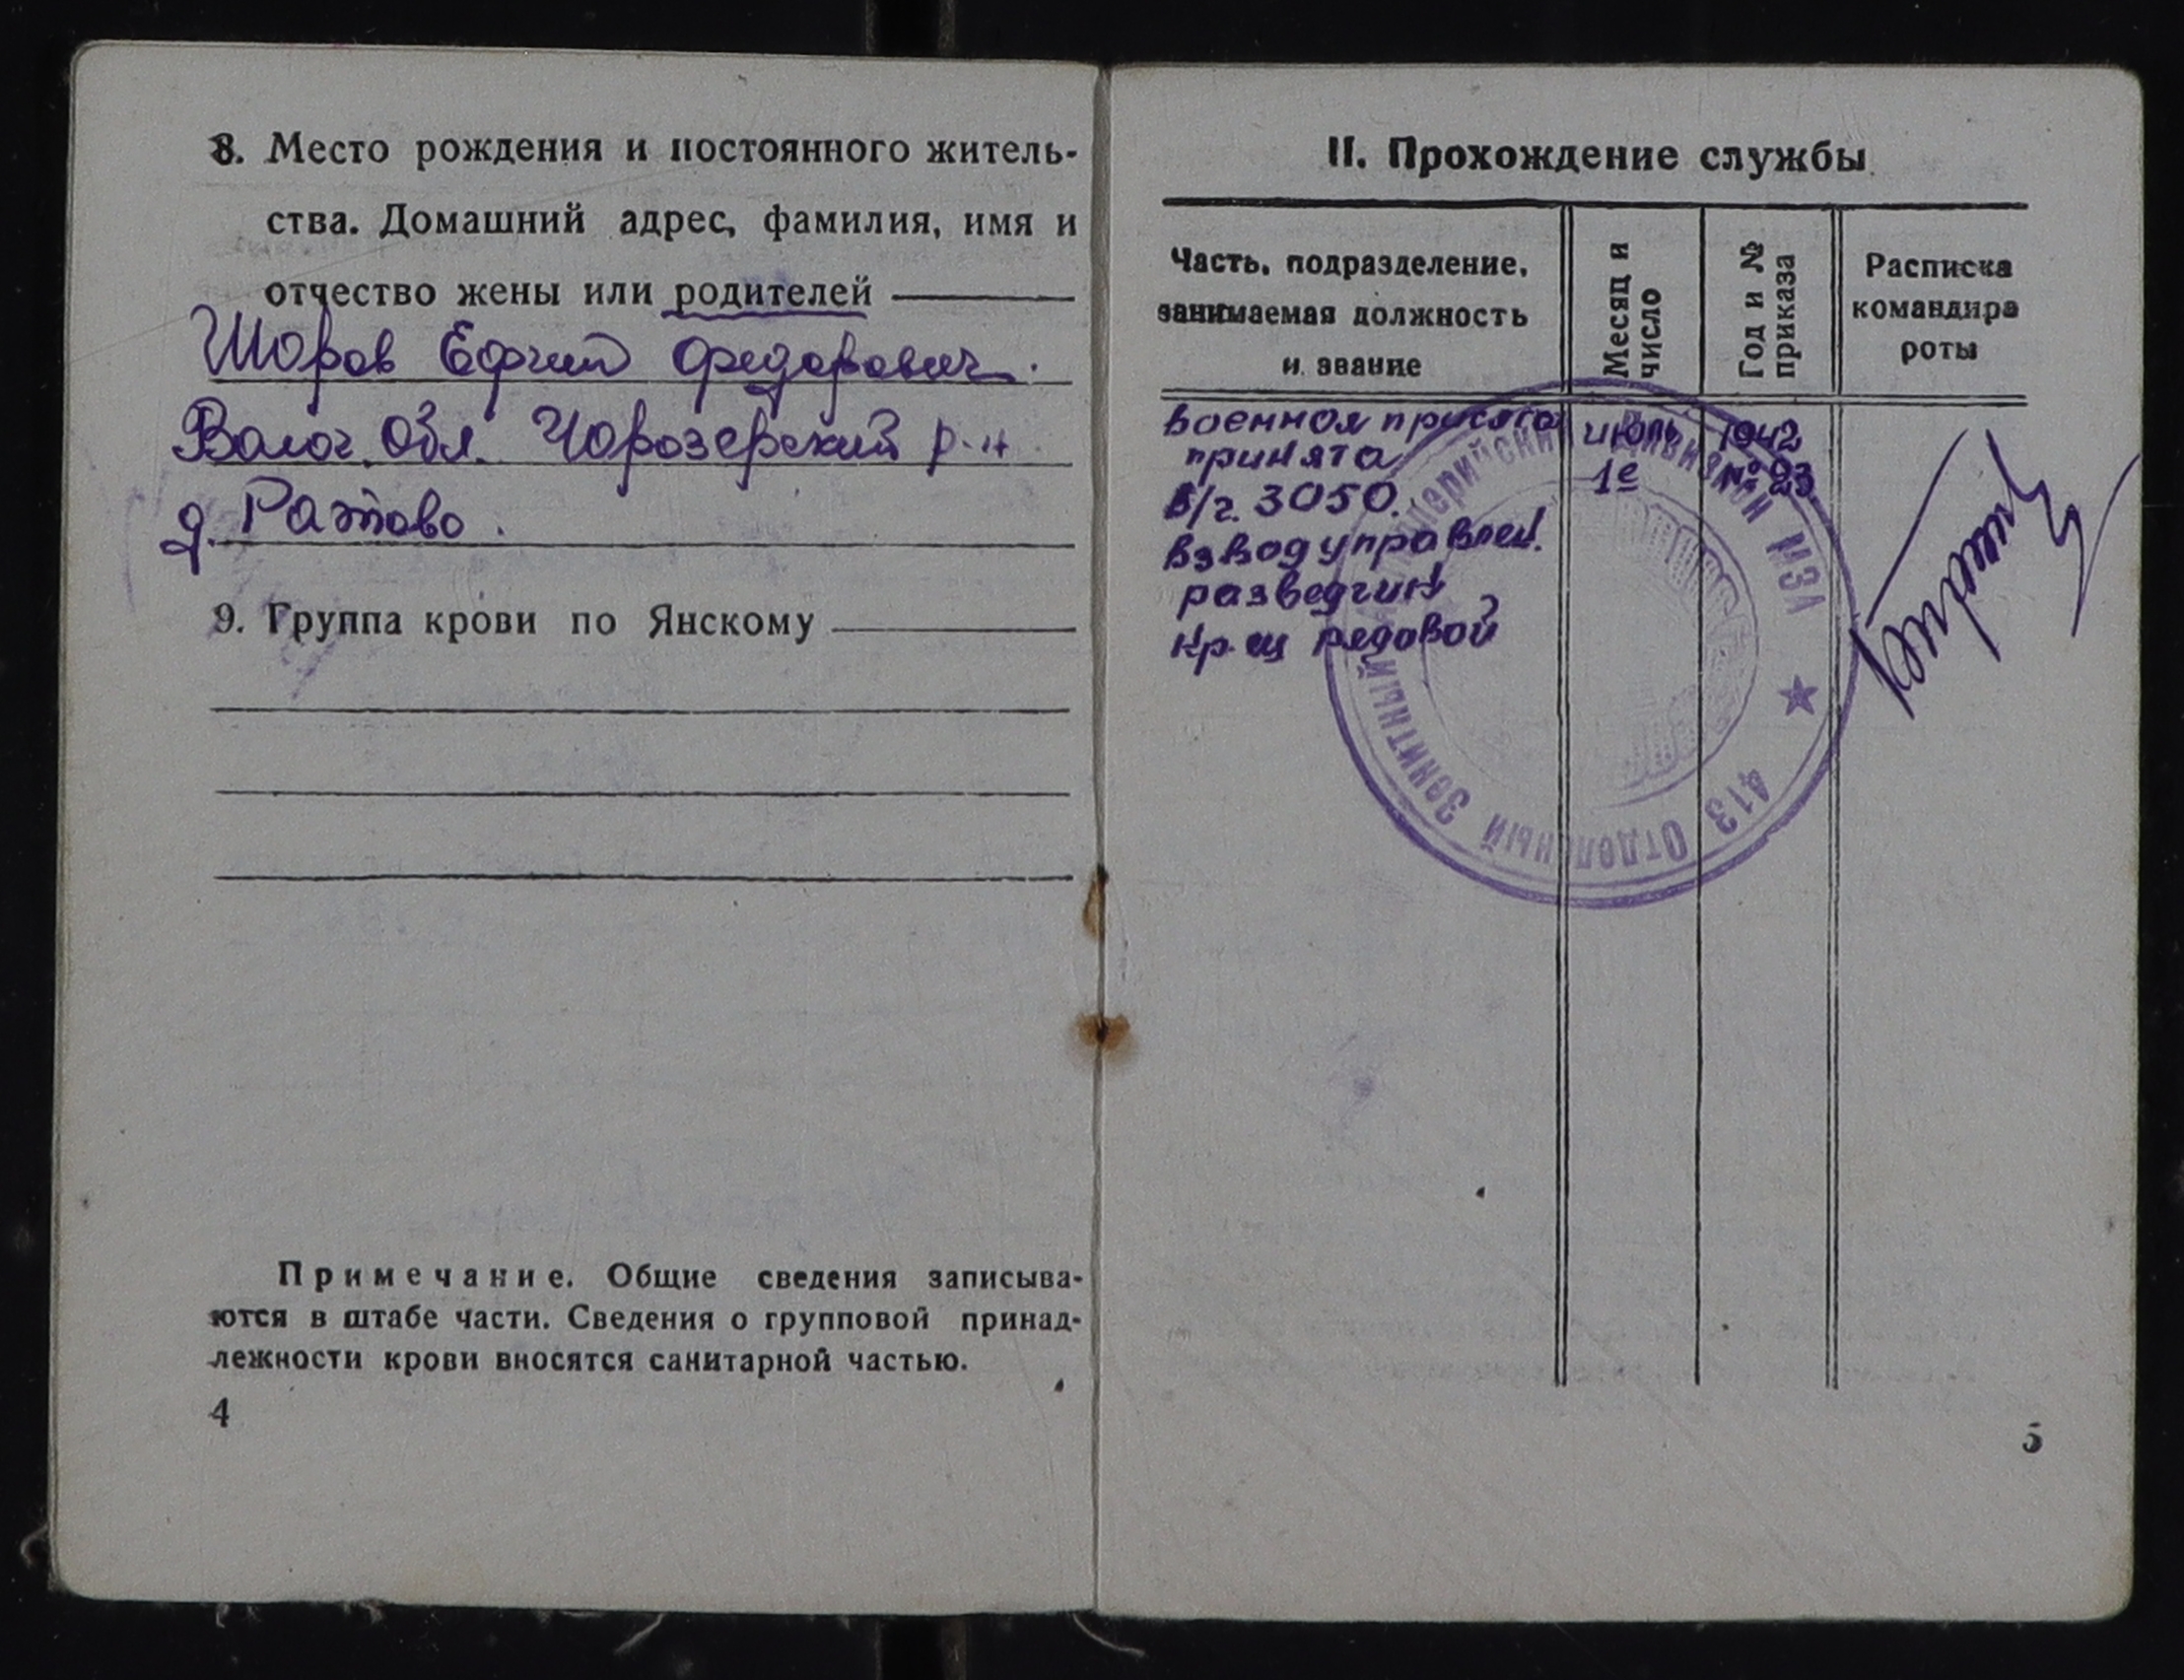 8. Место рождения и постоянного житель-
ства. Домашний адрес, фамилия, имя и
отчество жены или родителей
Шоров Ефим Федорович.
Волог. Обл. Чорозерский р-н
д. Ратово.
9. Группа крови по Янскому
Примечание. Общие сведения записыва-
ются в штабе части. Сведения о групповой принад-
лежности крови вносятся санитарной частью.
4
II. Прохождение службы
Часть, подразделение,
занимаемая должность
и звание
Месяц и
число
Год и №
приказа
Расписка
командира
роты
Военная присяга
принята
июль
1е
1942
№ 23
В/г. 3050.
взвод управлен.
разведчик
кр-ц рядовой
413 Отдельный Зенитный Артиллерийский Дивизион МЗА
5